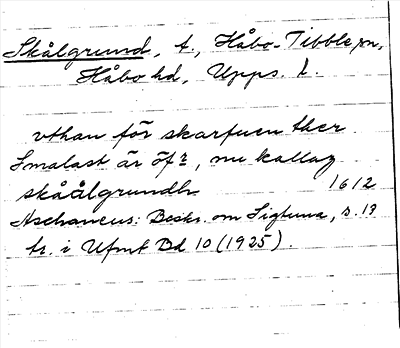 Skålgrund, t., Håbo-Tibble sn,
Håbo hd, Upps. l.
vthan för skarfuen ther
Smalast är öfr, nu kallaz
skåålgrundh 1612
Aschaneus: Beskr. om Sigtuna, s. 19
tr. i Ufmt Bd 10 (1925).